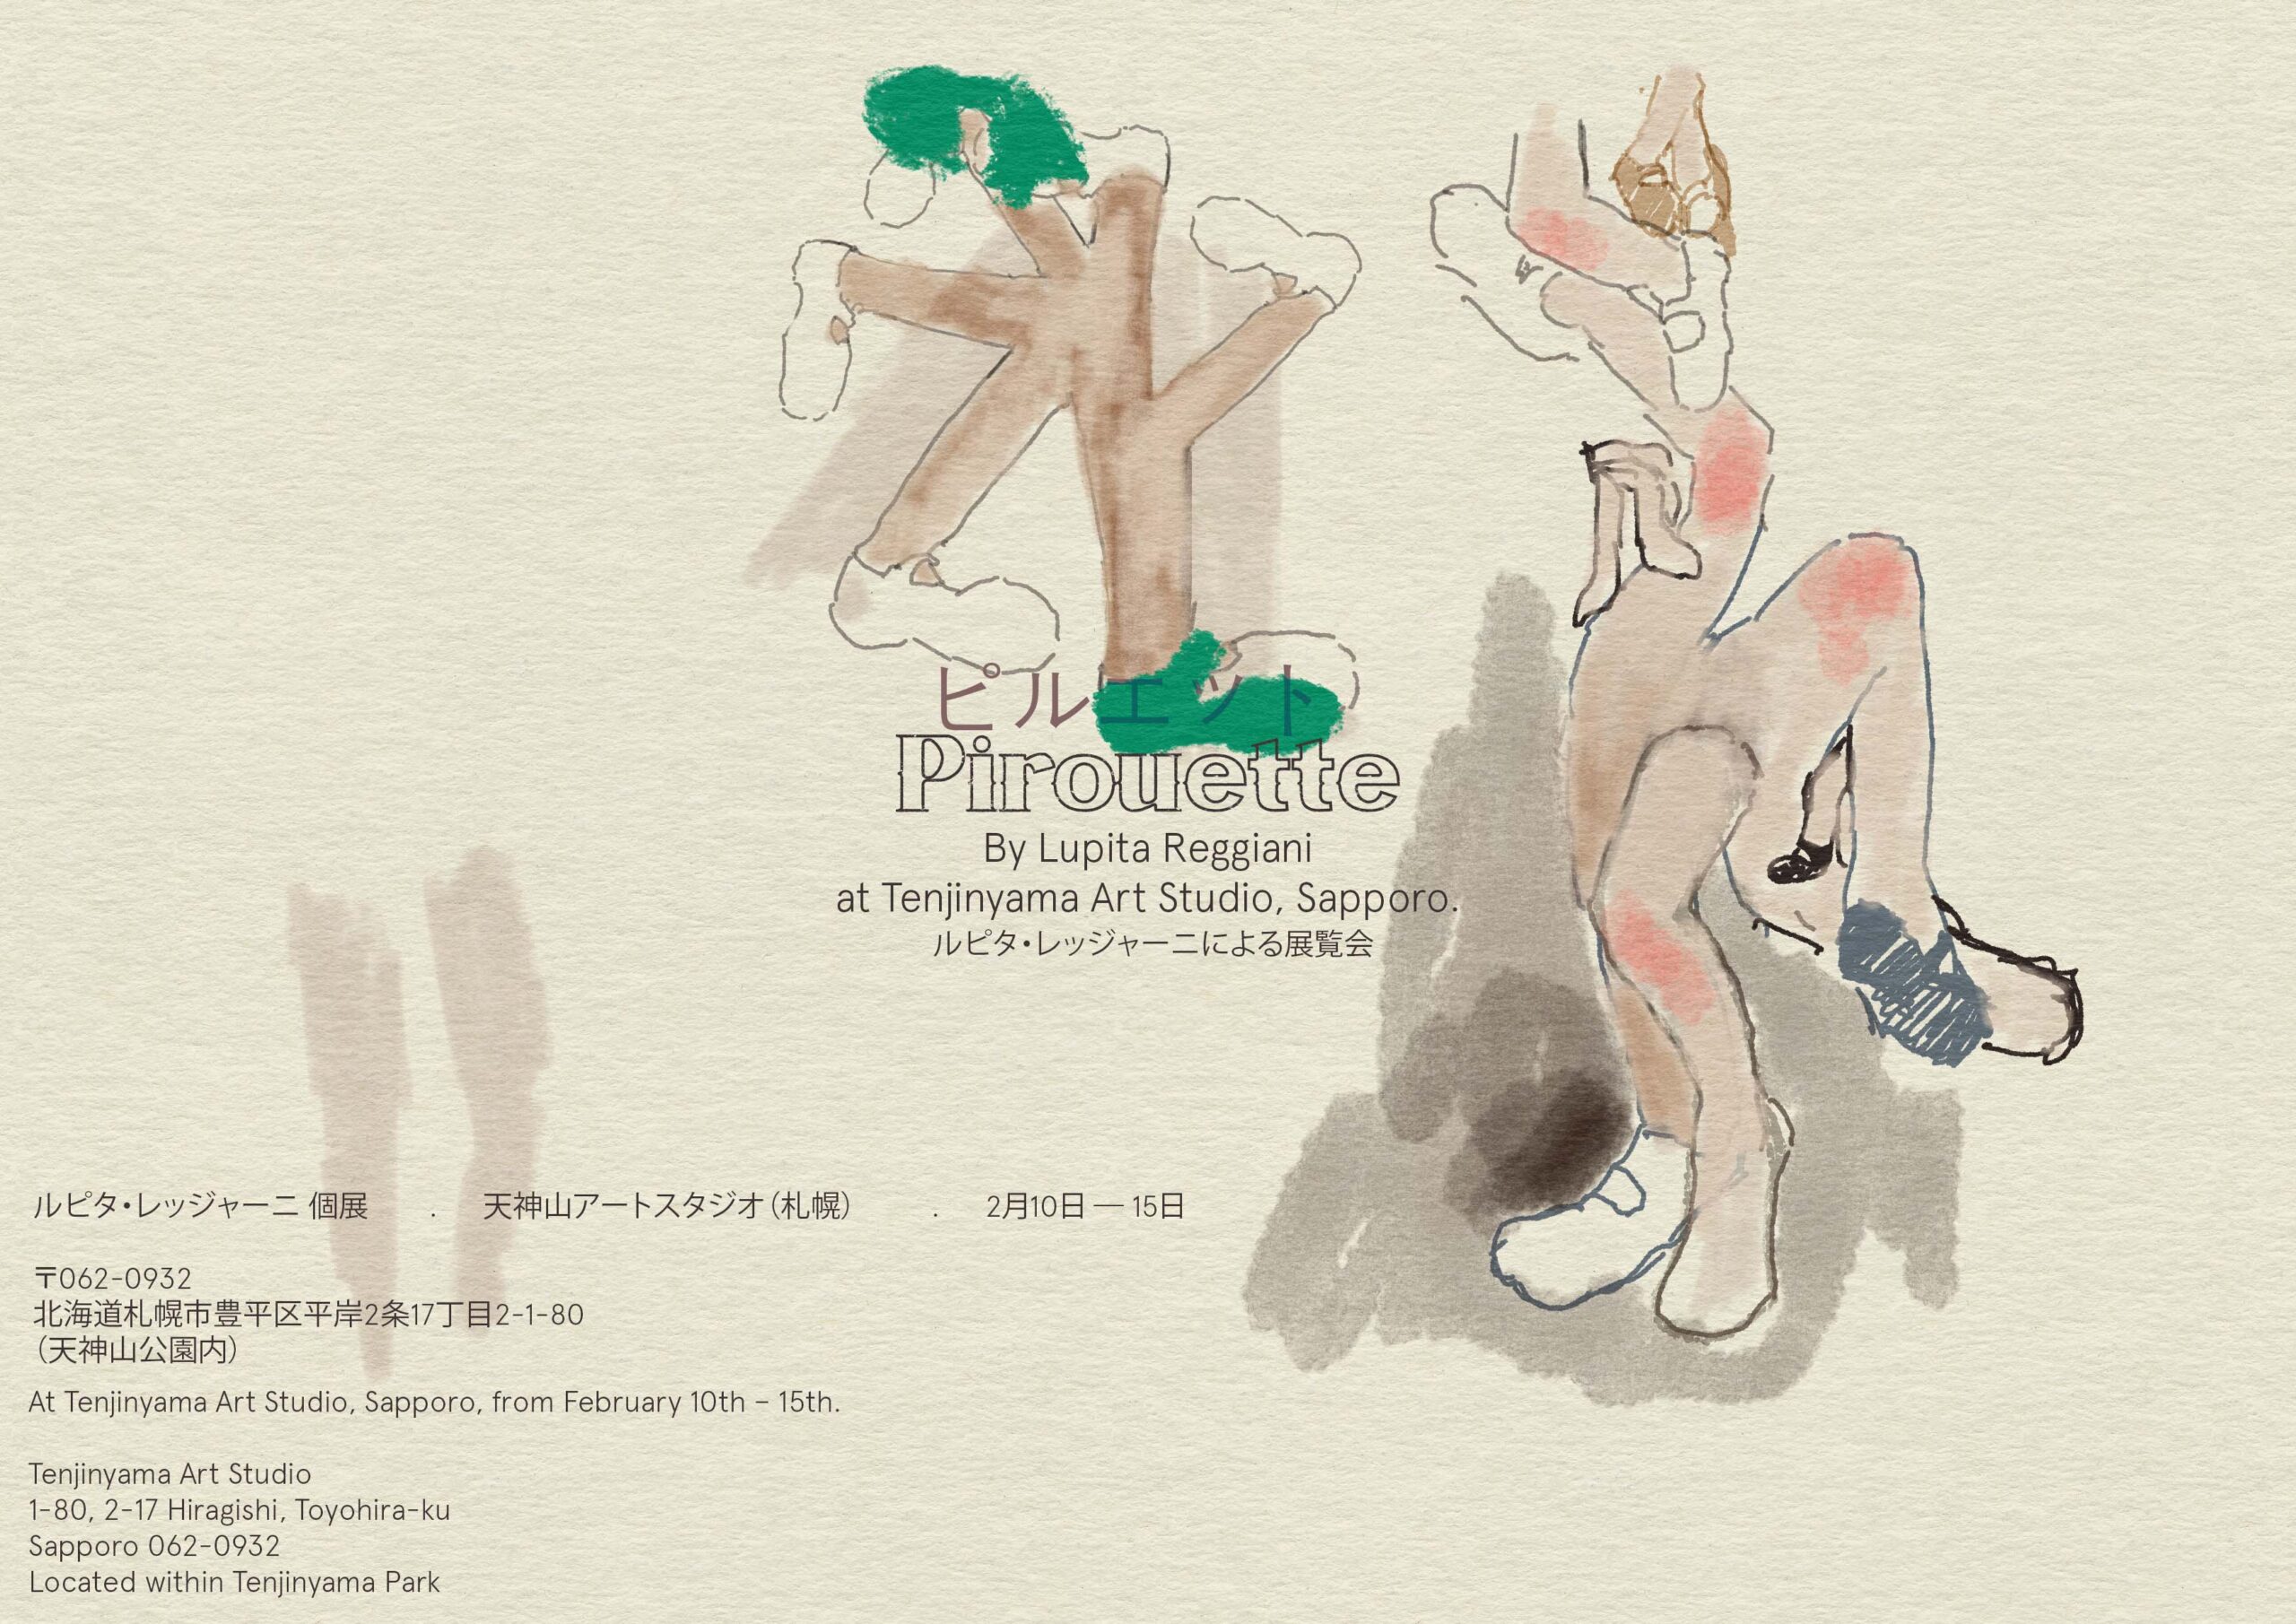 ピルエット
Pirouette
By Lupita Reggiani
at Tenjinyama Art Studio, Sapporo.
ルピタ・レッジャーニによる展覧会
ルピタ・レッジャーニ 個展 . 天神山アートスタジオ（札幌） . 2月10日 — 15日
〒062-0932
北海道札幌市豊平区平岸2条17丁目2-1-80
（天神山公園内）
At Tenjinyama Art Studio, Sapporo, from February 10th – 15th.
Tenjinyama Art Studio
1-80, 2-17 Hiragishi, Toyohira-ku
Sapporo 062-0932
Located within Tenjinyama Park